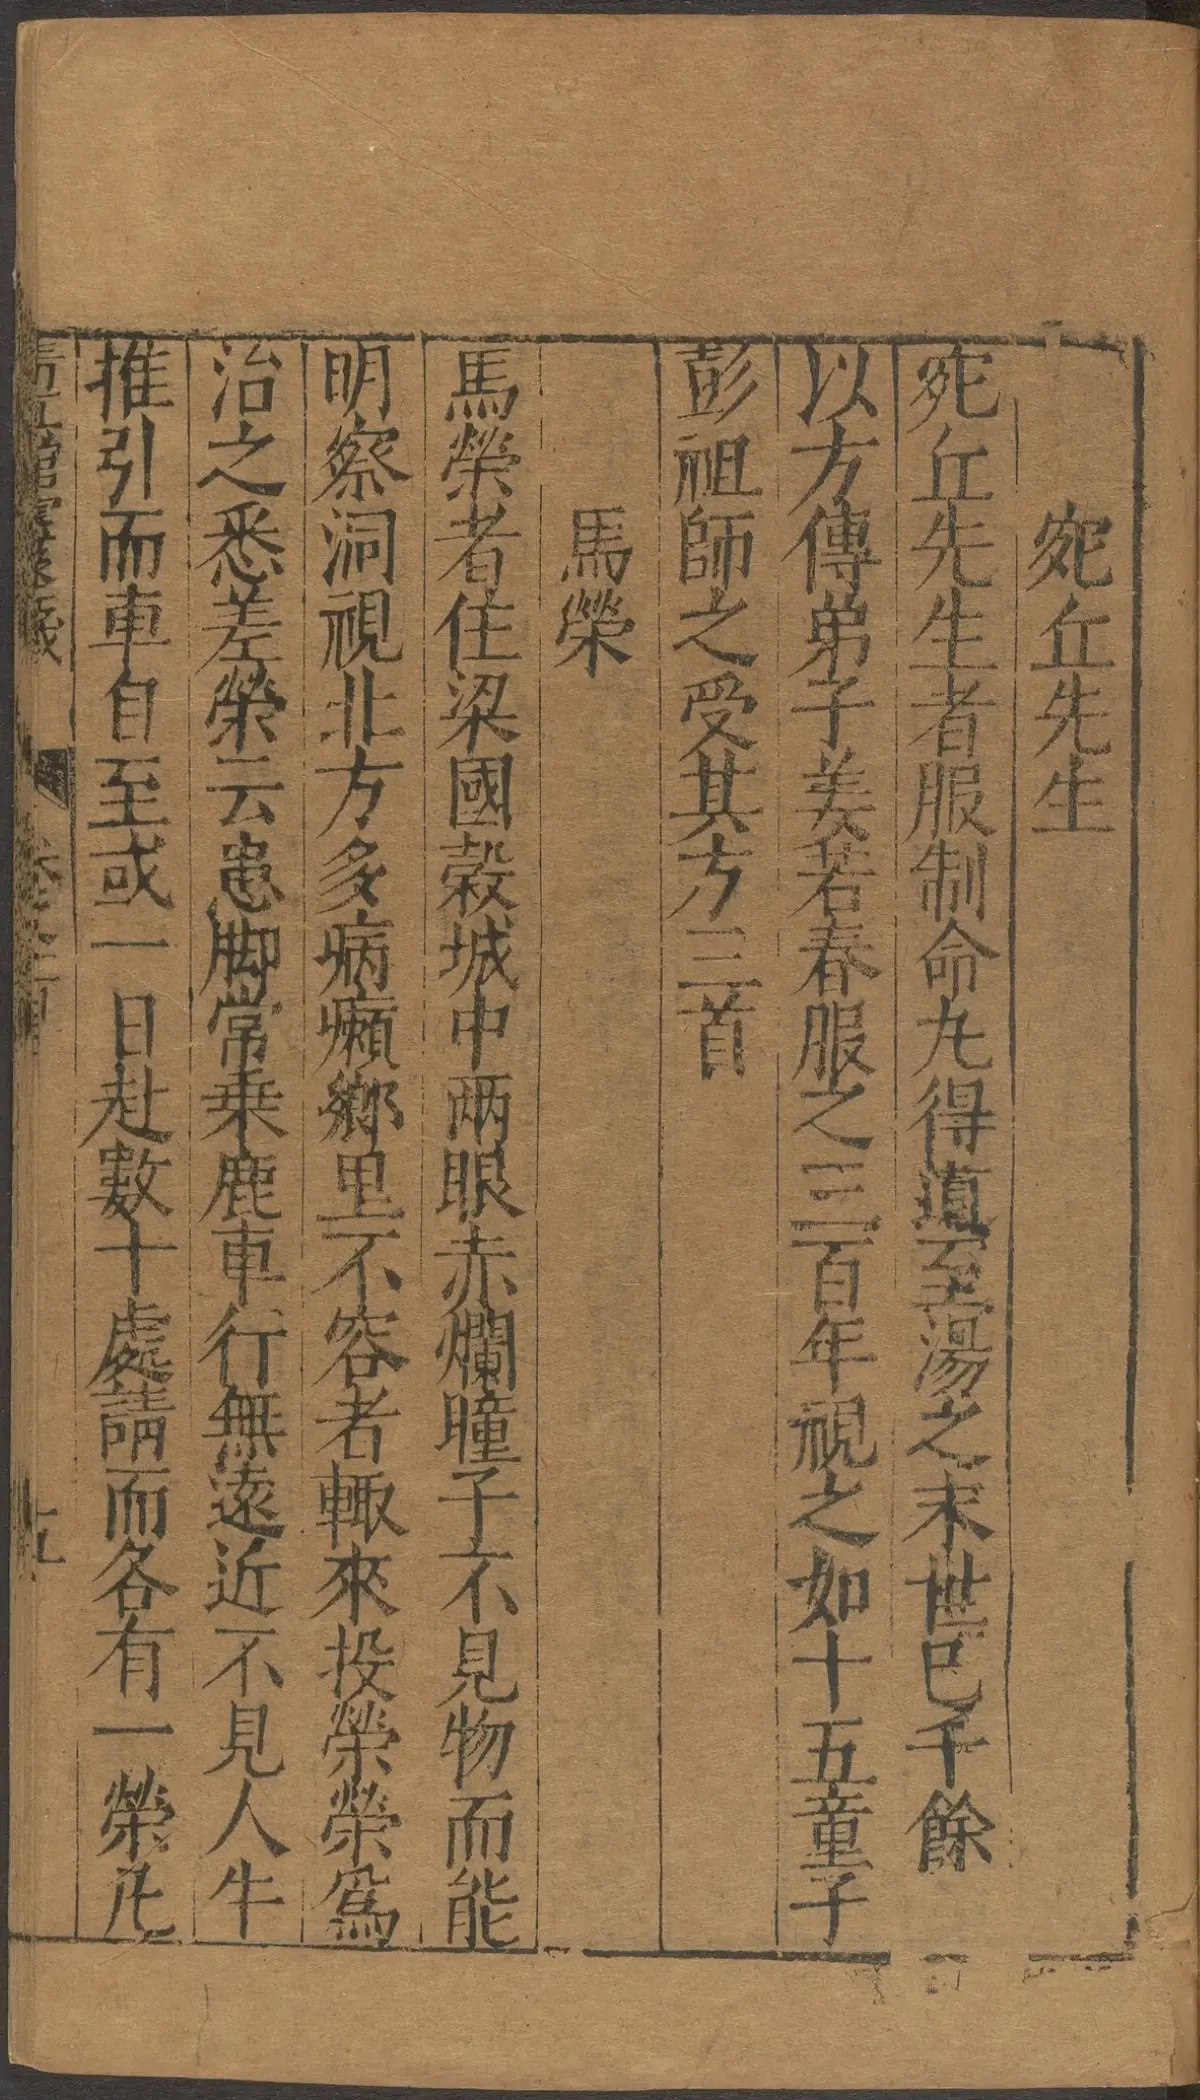 宛丘先生
宛丘先生者服制命丸得道至湯之末世已千餘
以方傳弟子姜若春服之三百年視之如十五童子
彭祖師之受其方三首
馬榮
馬榮者住梁國穀城中兩眼赤爛瞳子不見物而能
明察洞視北方多病癩鄉里不容者輙來投榮榮爲
治之悉差榮云患脚常乗鹿車行無遠近不見人牛
推引而車自至或一日赴數十處請而各有一榮凡